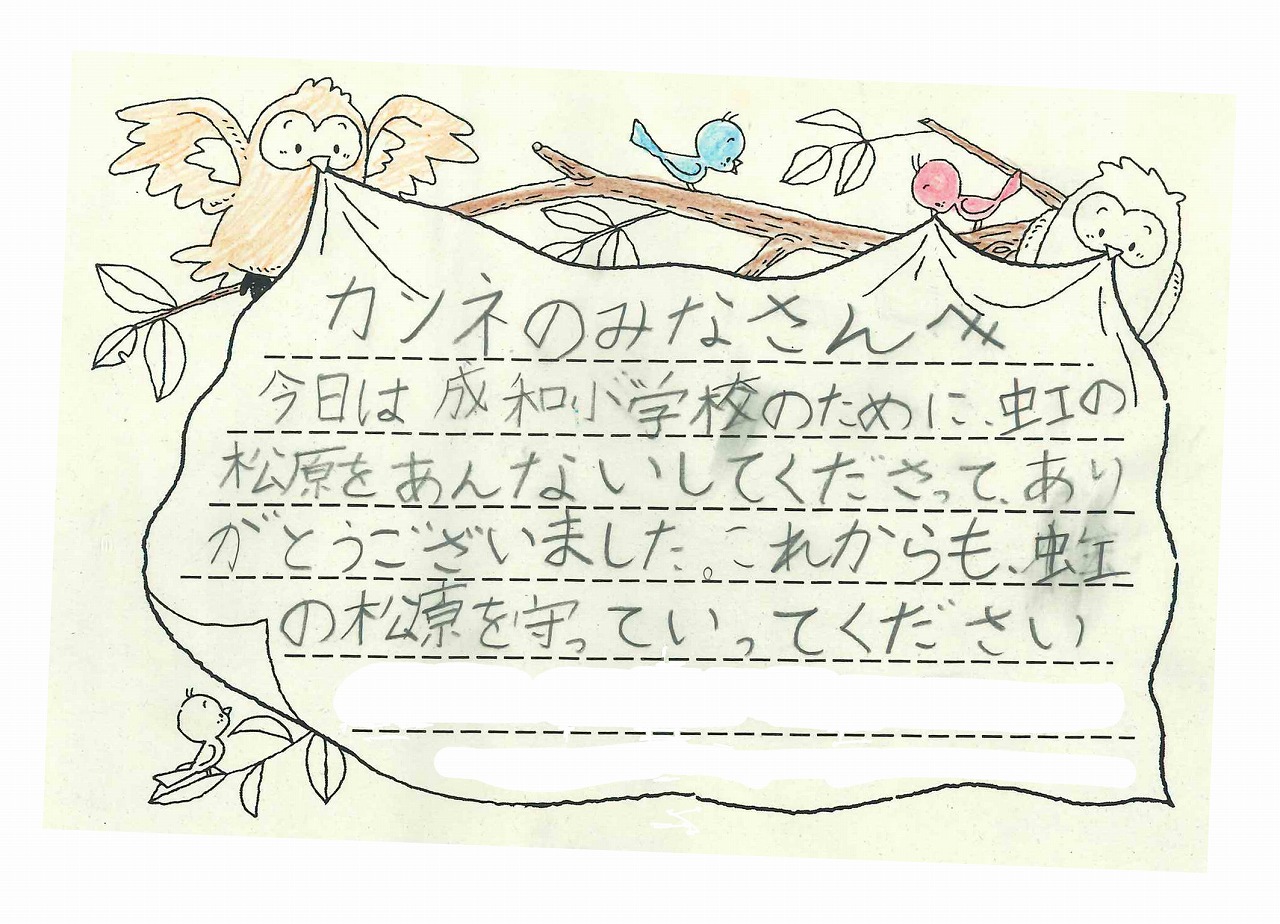 カンネのみなさんへ
今日は成和小学校のために、虹の
松原をあんないしてくださって、あり
がとうございました。これからも、虹
の松原を守っていってください